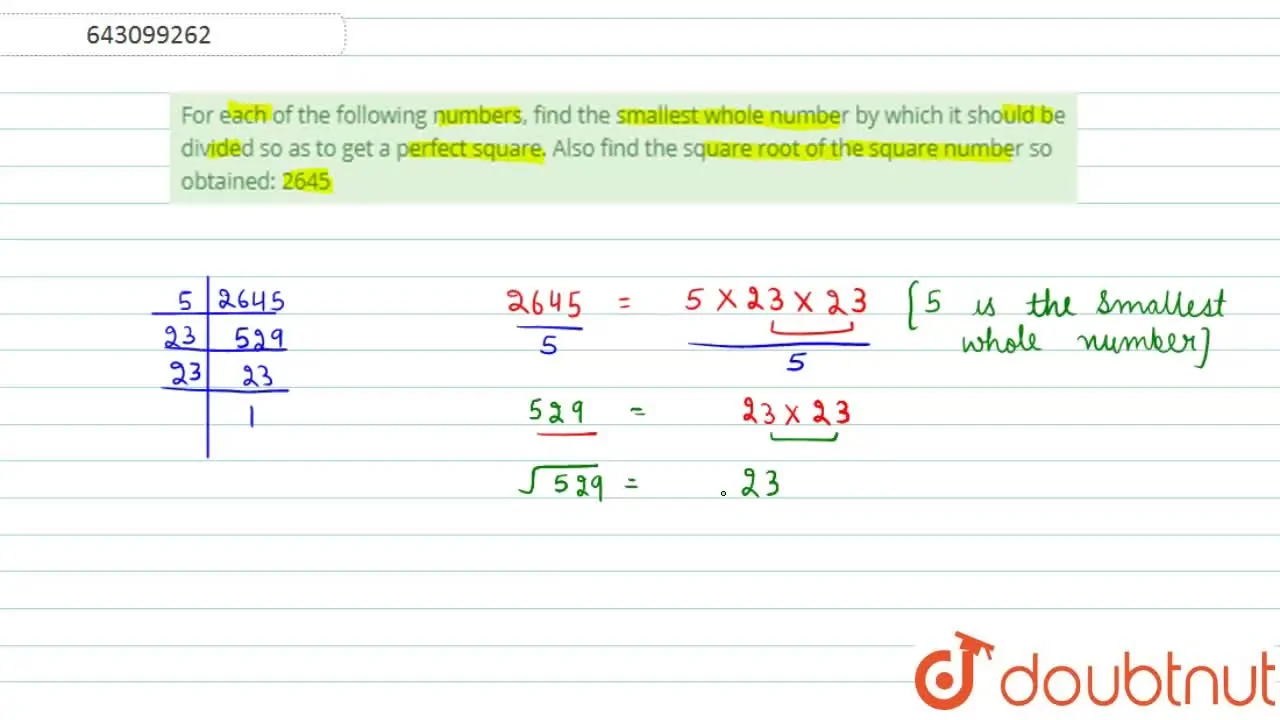 643099262
For each of the following numbers, find the smallest whole number by which it should be
divided so as to get a perfect square. Also find the square root of the square number so
obtained: 2645
5 | 2645
23 | 529
23 | 23
| 1
2645 = 5 × 23 × 23 [5 is the smallest
5 5 whole number]
529 = 23 × 23
√529 = 23
doubtnut